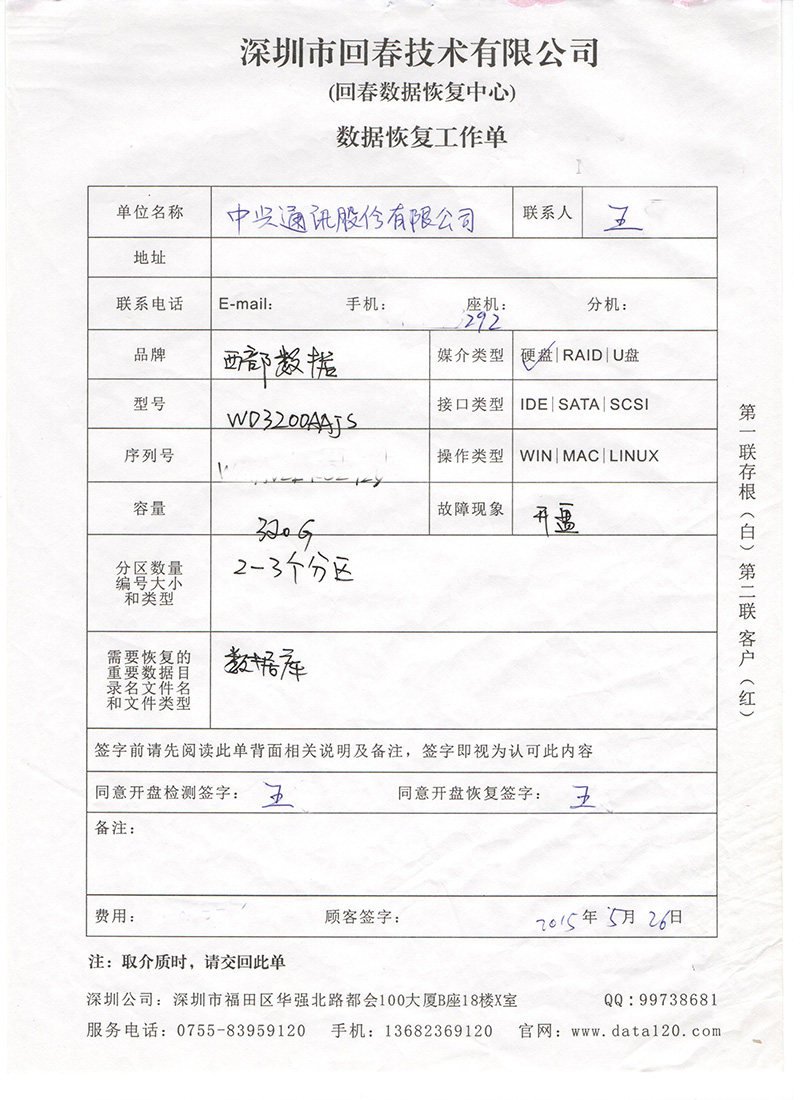 深圳市回春技术有限公司
(回春数据恢复中心)
数据恢复工作单
单位名称 中兴通讯股份有限公司 联系人 王
地址
联系电话 E-mail: 手机: 座机: 分机:
292
品牌 西部数据 媒介类型 硬盘|RAID|U盘
型号 WD3200AAJS 接口类型 IDE|SATA|SCSI
序列号 操作类型 WIN|MAC|LINUX
容量 320G 故障现象 开盘
分区数量
编号大小
和类型
2-3个分区
需要恢复的
重要数据目
录名文件名
和文件类型
数据库
签字前请先阅读此单背面相关说明及备注，签字即视为认可此内容
同意开盘检测签字: 王 同意开盘恢复签字: 王
备注:
费用: 顾客签字: 2015年5月26日
注: 取介质时，请交回此单
深圳公司: 深圳市福田区华强北路都会100大厦B座18楼X室 QQ:99738681
服务电话: 0755-83959120 手机: 13682369120 官网: www.data120.com
第一联存根（白）第二联客户（红）